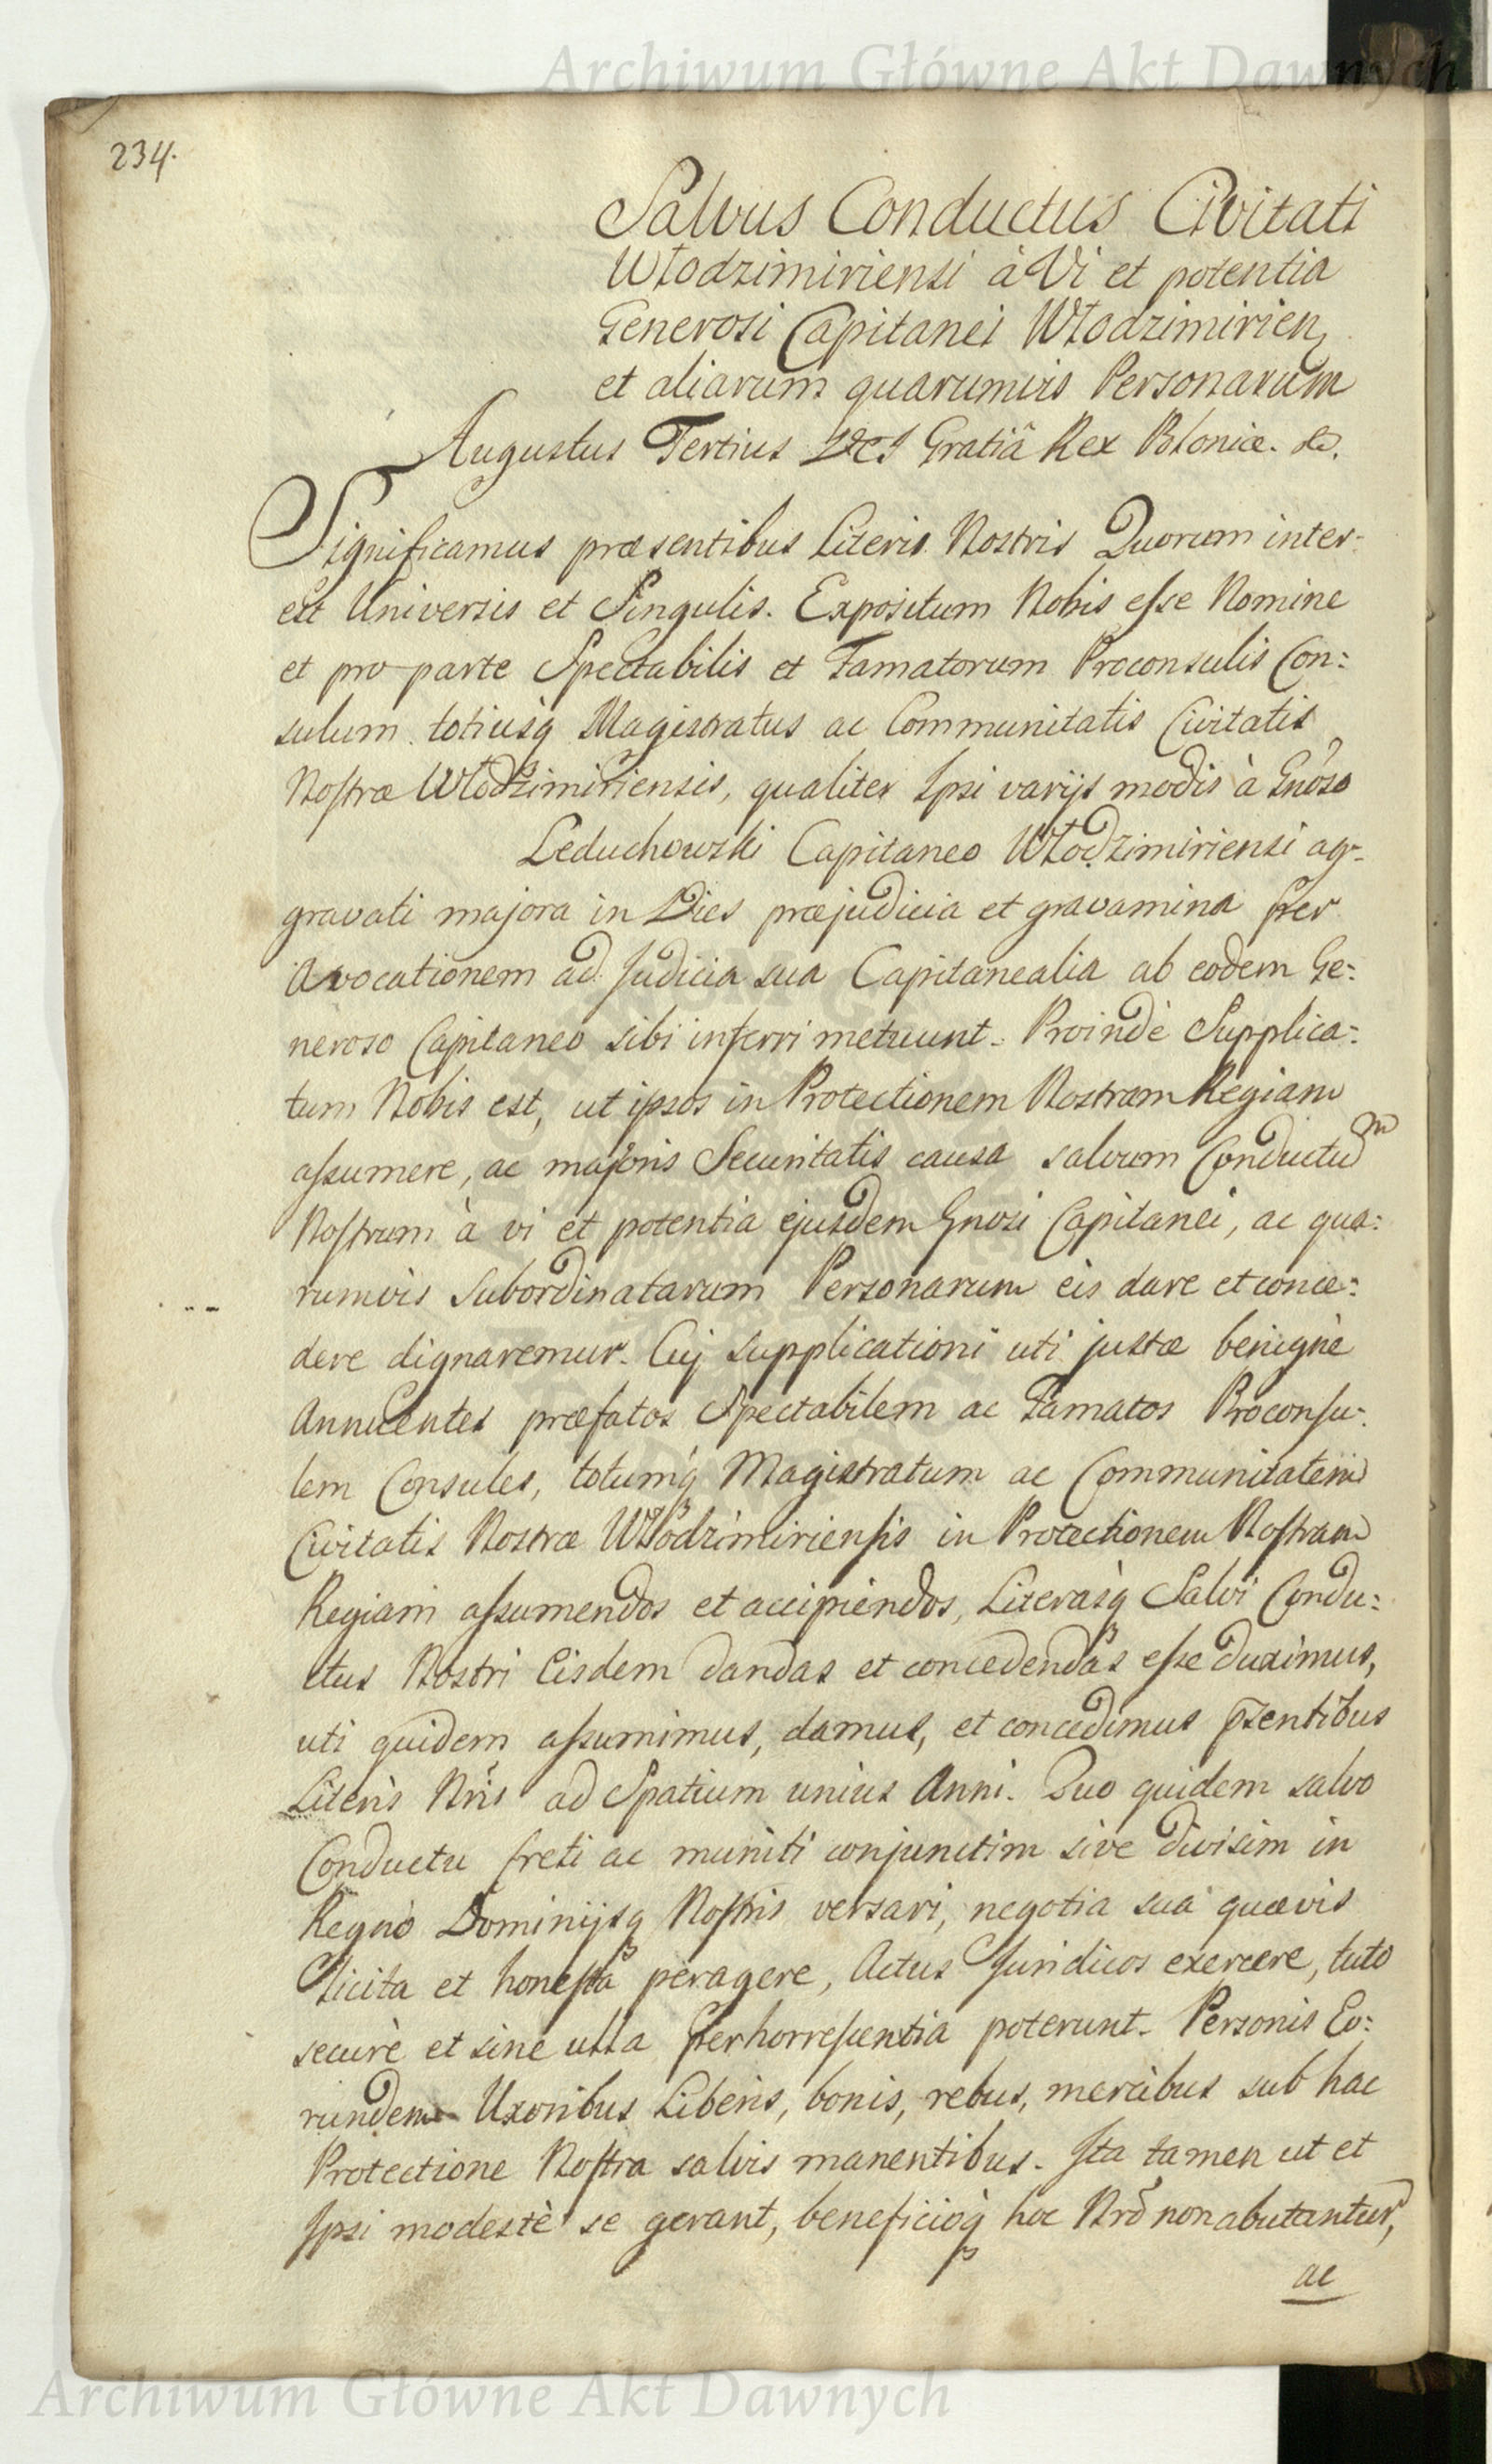 Archiwum Główne Akt Dawnych
234.
Salvus Conductus Civitati
Włodzimiriensi à Vi et potentia
Generosi Capitanei Włodzimirien,
et aliarum quarumvis Personarum
Augustus Tertius Dei Gratiâ Rex Poloniæ. &.
Significamus præsentibus Literis Nostris Quorum inter:
est Universis et Singulis. Expositum Nobis esse Nomine
et pro parte Spectabilis et Famatorum Proconsulis Con:
sulum totiusq Magistratus ac Communitatis Civitatis
Nostræ Włodzimiriensis, qualiter Ipsi varijs modis à Gnoso
Leduchowski Capitaneo Włodzimiriensi ag:
gravati majora in Dies præjudicia et gravamina per
Avocationem ad Judicia sua Capitanealia ab eodem Ge:
neroso Capitaneo sibi inferri metuunt. Proindè Supplica:
tum Nobis est, ut ipsos in Protectionem Nostram Regiam
assumere, ac majoris Securitatis causa salvum Conductum
Nostrum à vi et potentia ejusdem Gnosi Capitanei, ac qua:
rumvis Subordinatarum Personarum eis dare et conce:
dere dignaremur. Cuj supplicationi uti justæ benignè
Annuentes præfatos Spectabilem ac Famatos Proconsu:
lem Consules, totumq Magistratum ac Communitatem
Civitatis Nostræ Włodzimiriensis in Protectionem Nostram
Regiam assumendos et accipiendos, Literasq Salvi Condu:
ctus Nostri Eisdem dandas et concedendas esse duximus,
uti quidem assumimus, damus, et concedimus pzentibus
Literis Nris ad Spatium unius Anni. Quo quidem salvo
Conductu freti ac muniti conjunctim sive divisim in
Regno Dominijsq Nostris versari, negotia sua quævis
licita et honesta peragere, Actus Juridicos exercere, tuto
securè et sine ulla perhorrescentia poterunt. Personis Eo:
rundem Uxoribus Liberis, bonis, rebus, mercibus sub hac
Protectione Nostra salvis manentibus. Ita tamen ut et
Ipsi modestè se gerant, beneficioq hoc Nro non abutantur,
ac
Archiwum Główne Akt Dawnych